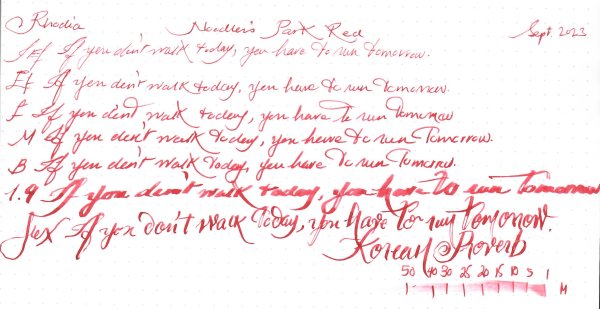 Rhodia Noodler's Park Red Sept. 2023
EF If you don't walk today, you have to run tomorrow.
EF If you don't walk today, you have to run Tomorrow.
F If you don't walk today, you have to run Tomorrow
M If you don't walk today, you have to run Tomorrow.
B If you don't walk Today, you have to run Tomorrow.
1.9 If you don't walk today, you have to run Tomorrow
Flex If you don't walk Today, you have to run Tomorrow.
Korean Proverb
50 40 30 25 20 15 10 5 1
M